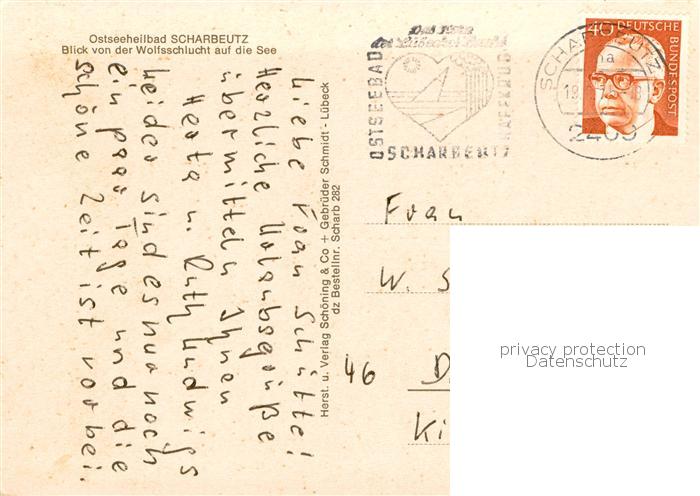 Ostseeheilbad SCHARBEUTZ
Blick von der Wolfsschlucht auf die See
Liebe Frau Schütte!
Herzliche Urlaubsgrüße
übermitteln Ihnen
Herta u. Ruth Ludwigs
Leider sind es nur noch
ein paar Tage und die
schöne Zeit ist vorbei.
Herst. u. Verlag Schöning & Co + Gebrüder Schmidt - Lübeck
dz Bestellnr. Scharb 282
Das Herz
der Lübecker Bucht
OSTSEEBAD
HAFFKRUG
SCHARBEUTZ
SCHARBEUTZ
1a
19
2409
40 DEUTSCHE
BUNDESPOST
Frau
W. S
46 D
Ki
privacy protection
Datenschutz